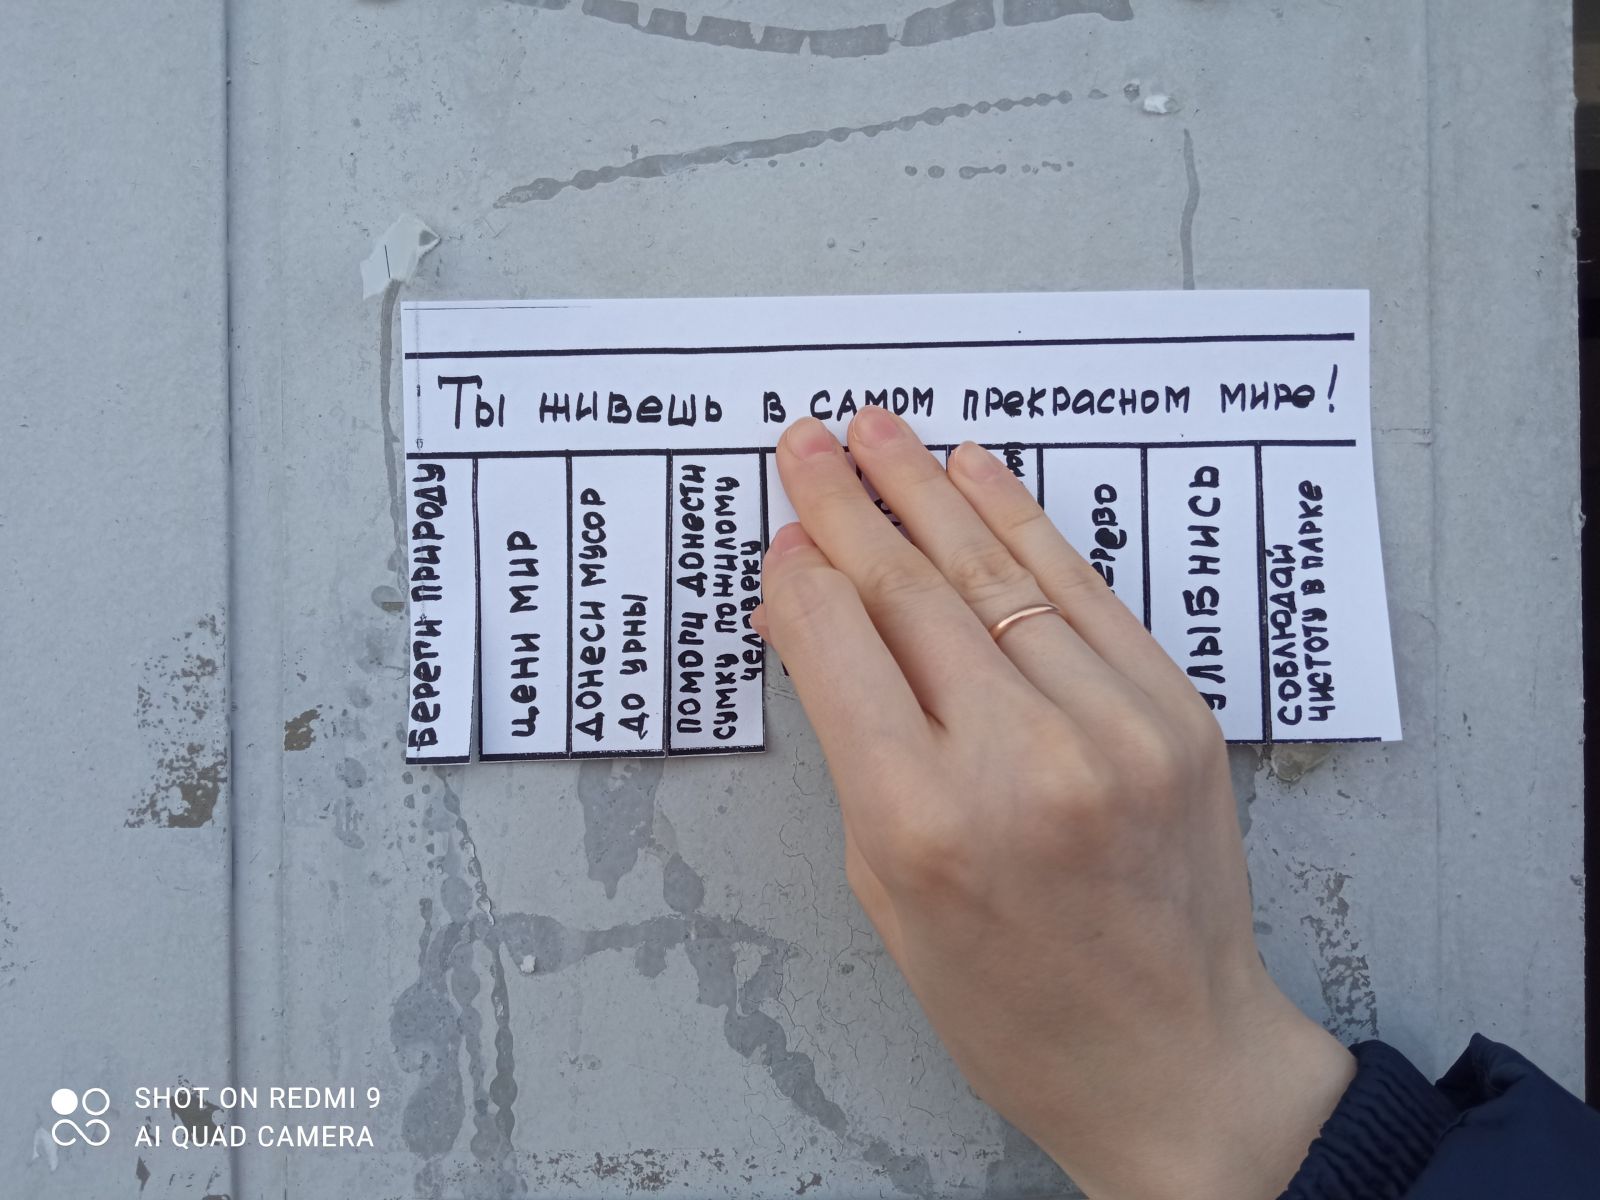 Ты живешь в самом прекрасном мире!
Береги природу
цени мир
донеси мусор
до урны
помоги донести
сумку пожилому
человеку
улыбнись
соблюдай
чистоту в парке
SHOT ON REDMI 9
AI QUAD CAMERA